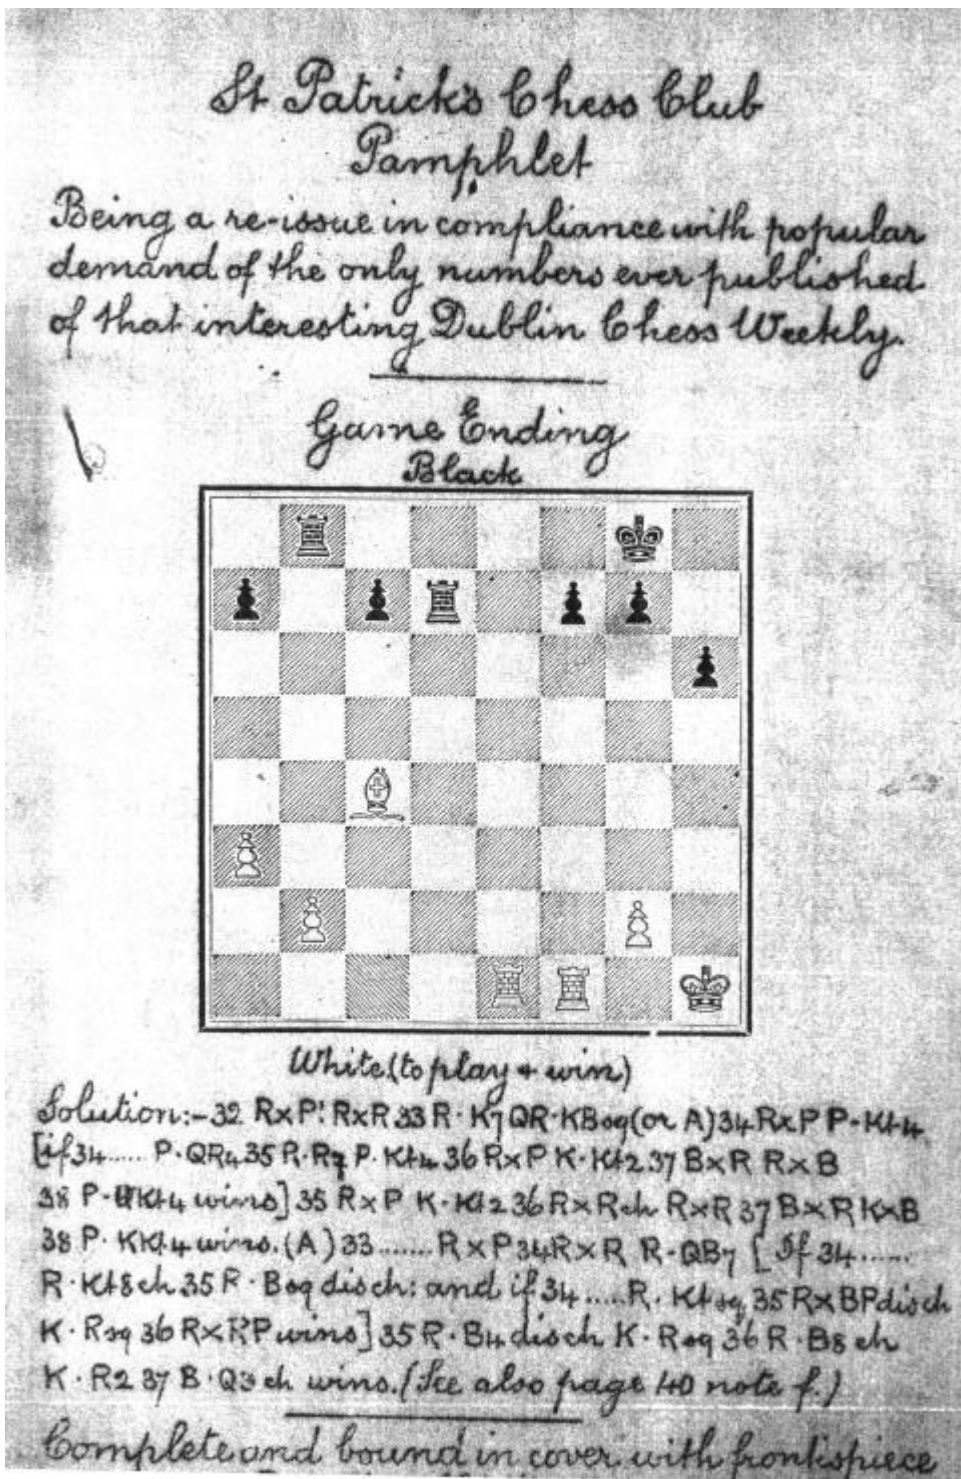 St Patrick's Chess Club
Pamphlet
Being a re-issue in compliance with popular
demand of the only numbers ever published
of that interesting Dublin Chess Weekly.
Game Ending
Black
White (to play + win)
Solution:- 32 R×P! R×R 33 R·K7 QR·KBsq (or A) 34 R×P P-Kt4
[if 34...... P·QR4 35 R·R7 P·Kt4 36 R×P K·Kt2 37 B×R R×B
38 P·KKt4 wins] 35 R×P K·Kt2 36 R×Rch R×R 37 B×R K×B
38 P·KKt4 wins. (A) 33....... R×P 34 R×R R-QB7 [If 34......
R·Kt8ch 35 R·Bsq disch: and if 34.....R·Ktsq 35 R×BP disch
K·Rsq 36 R×RP wins] 35 R·B4 disch K·Rsq 36 R·B8 ch
K·R2 37 B·Q3 ch wins. (See also page 40 note f.)
Complete and bound in cover with frontispiece